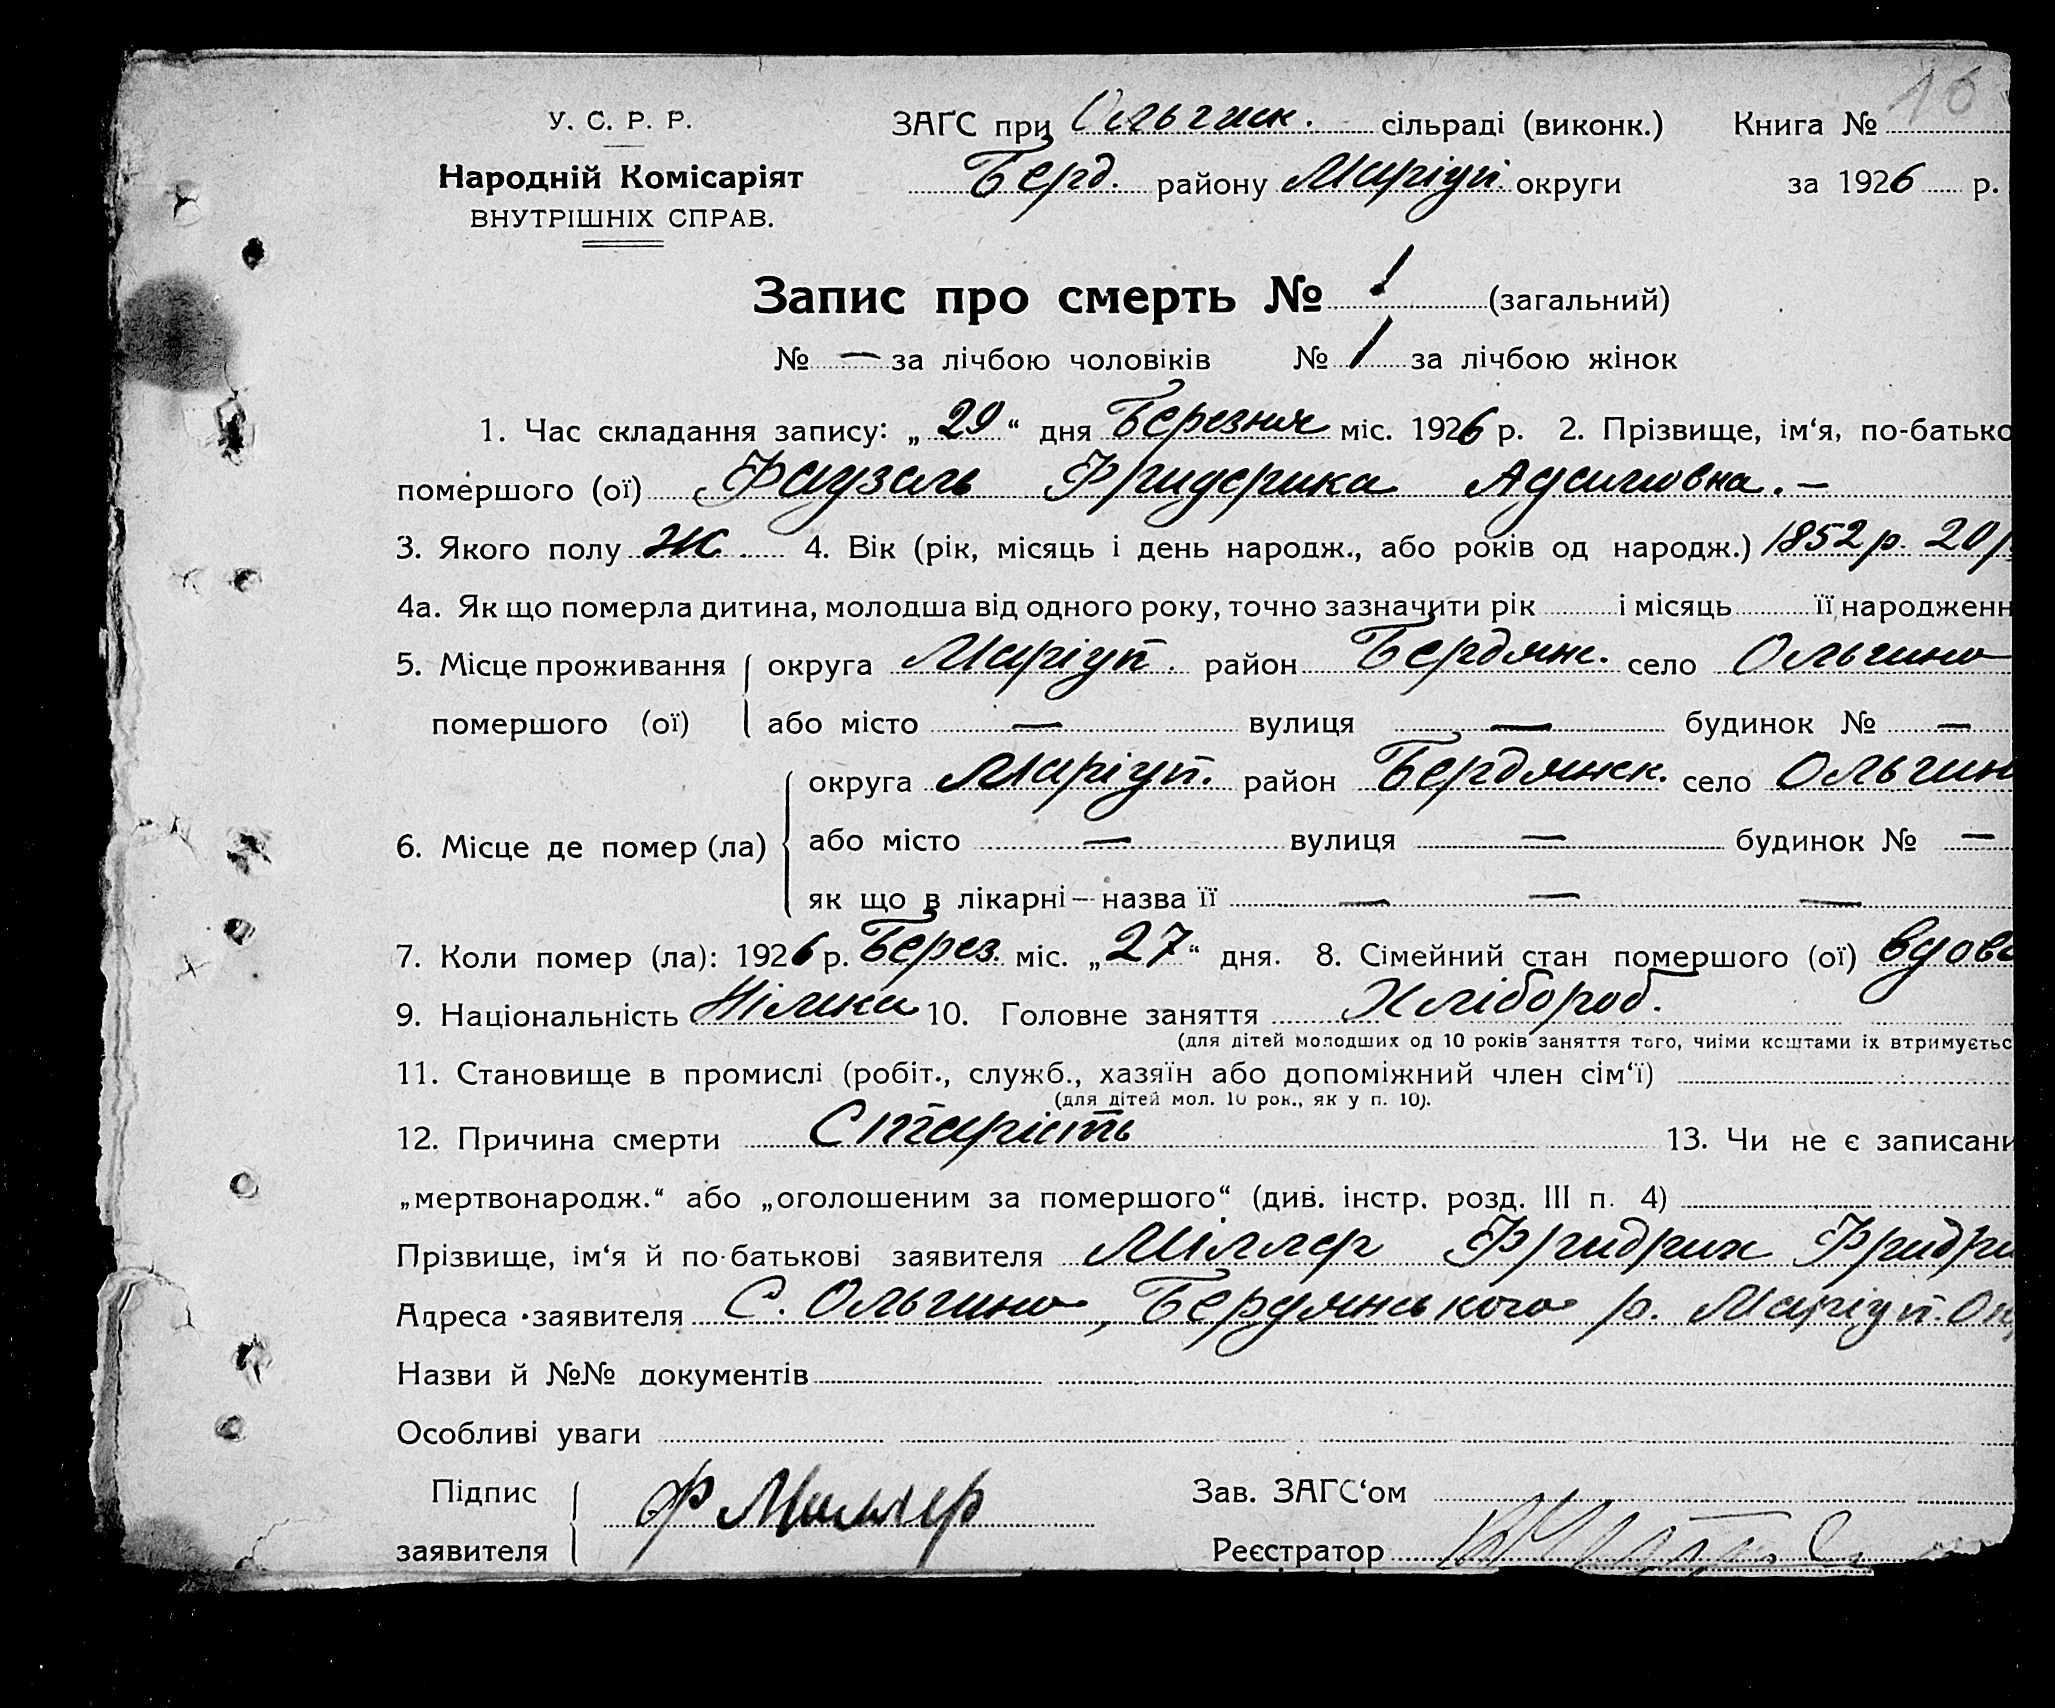 16
У. С. Р. Р.
Народній Комісаріят
ВНУТРІШНІХ СПРАВ.
ЗАГС при Ольгинк. сільраді (виконк.) Книга №
Берд. району Маріуп. округи за 1926 р.
Запис про смерть № 1 (загальний)
№ — за лічбою чоловіків № 1 за лічбою жінок
1. Час складання запису: „29“ дня Березня міс. 1926 р. 2. Прізвище, ім‘я, по-батько
помершого (ої) Фаузель Фридерика Адамовна. —
3. Якого полу Ж 4. Вік (рік, місяць і день народж., або років од народж.) 1852 р. 20
4а. Як що померла дитина, молодша від одного року, точно зазначити рік і місяць її народженн
5. Місце проживання округа Маріуп. район Бердянс. село Ольгино
помершого (ої) або місто — вулиця — будинок № —
округа Маріуп. район Бердянск. село Ольгин
6. Місце де помер (ла) або місто — вулиця — будинок № —
як що в лікарні — назва її — — —
7. Коли помер (ла): 1926 р. Берез. міс. „27“ дня. 8. Сімейний стан помершого (ої) вдова
9. Національність Німка 10. Головне заняття Хлібороб.
(для дітей молодших од 10 років заняття того, чиїми коштами їх втримуєтьс
11. Становище в промислі (робіт., служб., хазяїн або допоміжний член сім‘ї)
(для дітей мол. 10 рок., як у п. 10).
12. Причина смерти Старість 13. Чи не є записани
„мертвонародж.“ або „оголошеним за помершого“ (див. інстр. розд. III п. 4)
Прізвище, ім‘я й по-батькові заявителя Міллер Фридрих Фридри
Адреса заявителя С. Ольгино, Бердянського р. Маріуп. Ок
Назви й №№ документів
Особливі уваги
Підпис заявителя Ф Миллер Зав. ЗАГС‘ом
Реєстратор